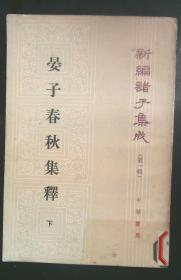 新編諸子集成
(第一輯)
晏子春秋集釋
下
中華書局